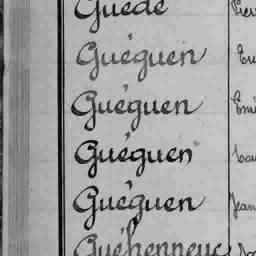 Guédé
Guéguen
Guéguen
Guéguen
Guéguen Jean
Guéhenneuc